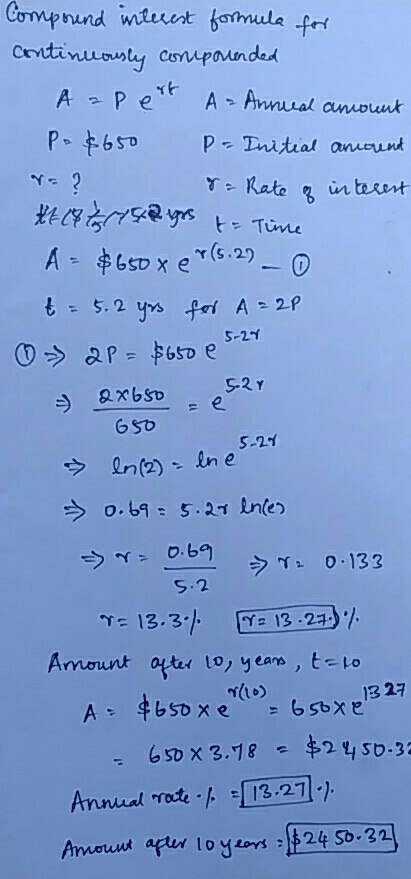 Compound interest formula for
continuously compounded
A = P e^rt A = Annual amount
P = $650 P = Initial amount
r = ? r = Rate of interest
t = Time
A = $650 x e^r(5.2) — ①
t = 5.2 yrs for A = 2P
① ⇒ 2P = $650 e^5.2r
⇒ 2x650/650 = e^5.2r
⇒ ln(2) = ln e^5.2r
⇒ 0.69 = 5.2r ln(e)
⇒ r = 0.69/5.2 ⇒ r = 0.133
r = 13.3% r = 13.27%
Amount after 10, years, t = 10
A = $650 x e^r(10) = 650 x e^1327
= 650 x 3.78 = $2450.32
Annual rate % = 13.27 %
Amount after 10 years = $2450.32